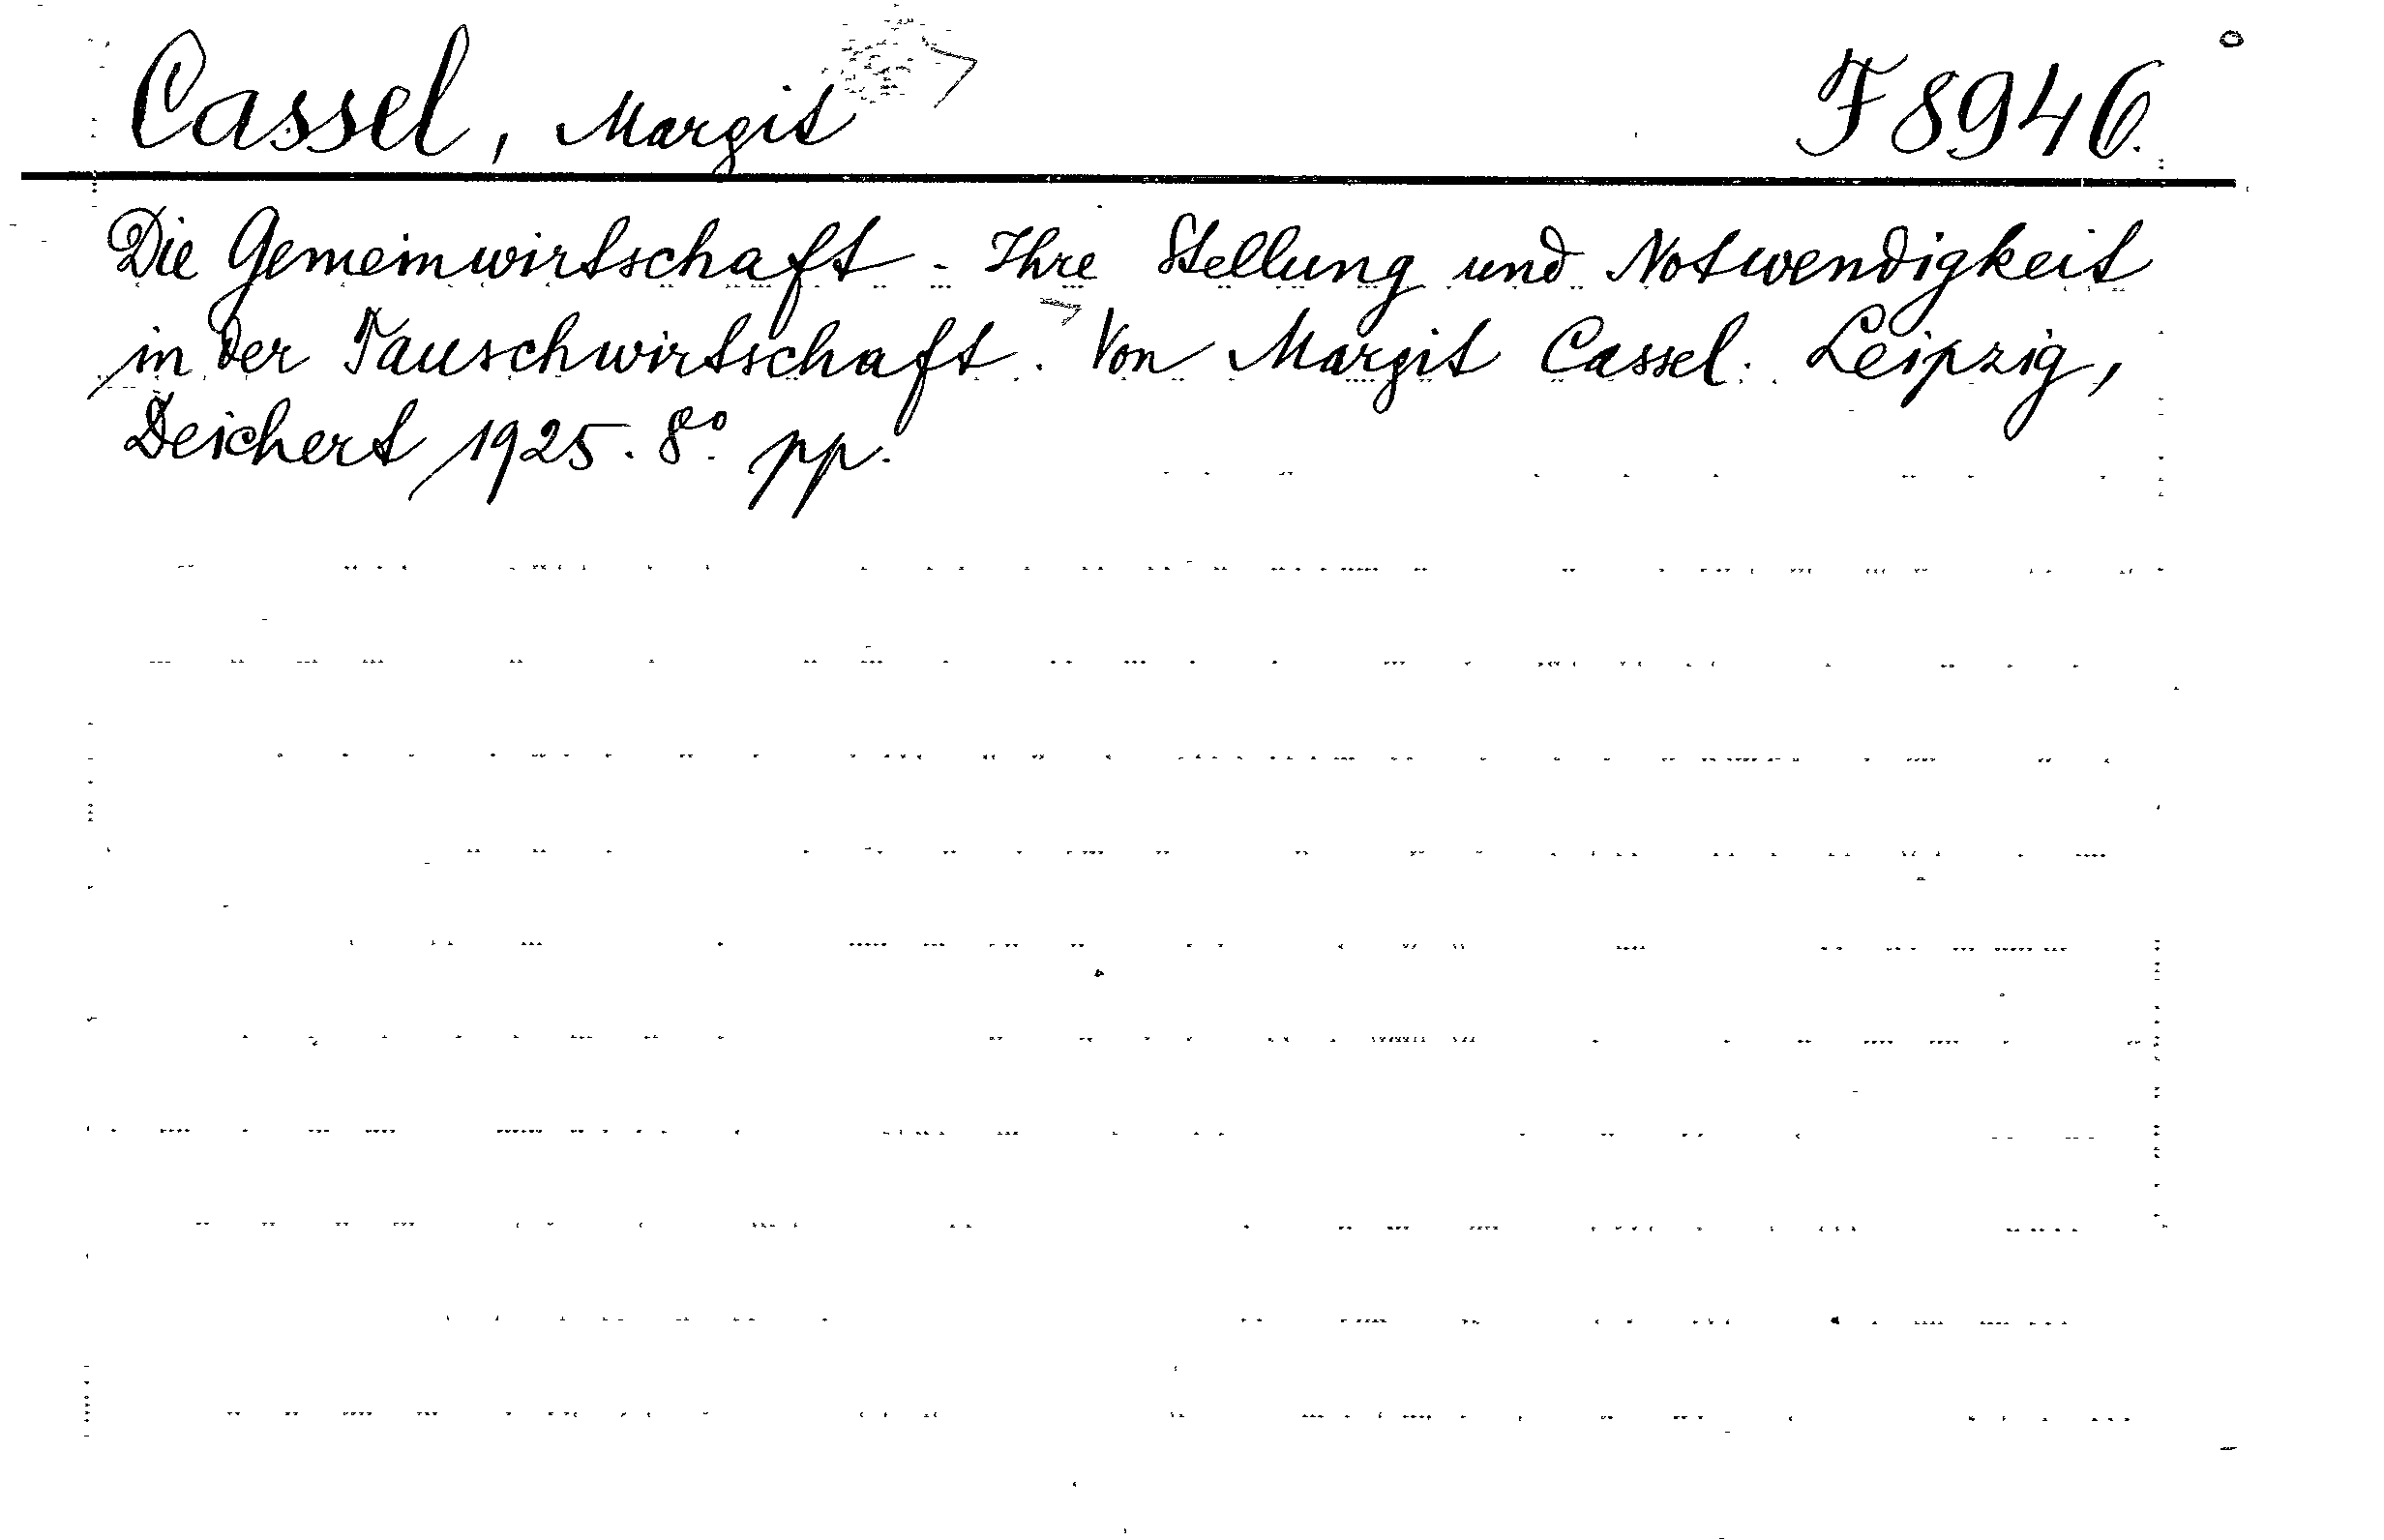 Cassel, Margit F 8946.
Die Gemeinwirtschaft - Ihre Stellung und Notwendigkeit
in der Tauschwirtschaft. Von Margit Cassel. Leipzig,
Deichert 1925. 8° pp.